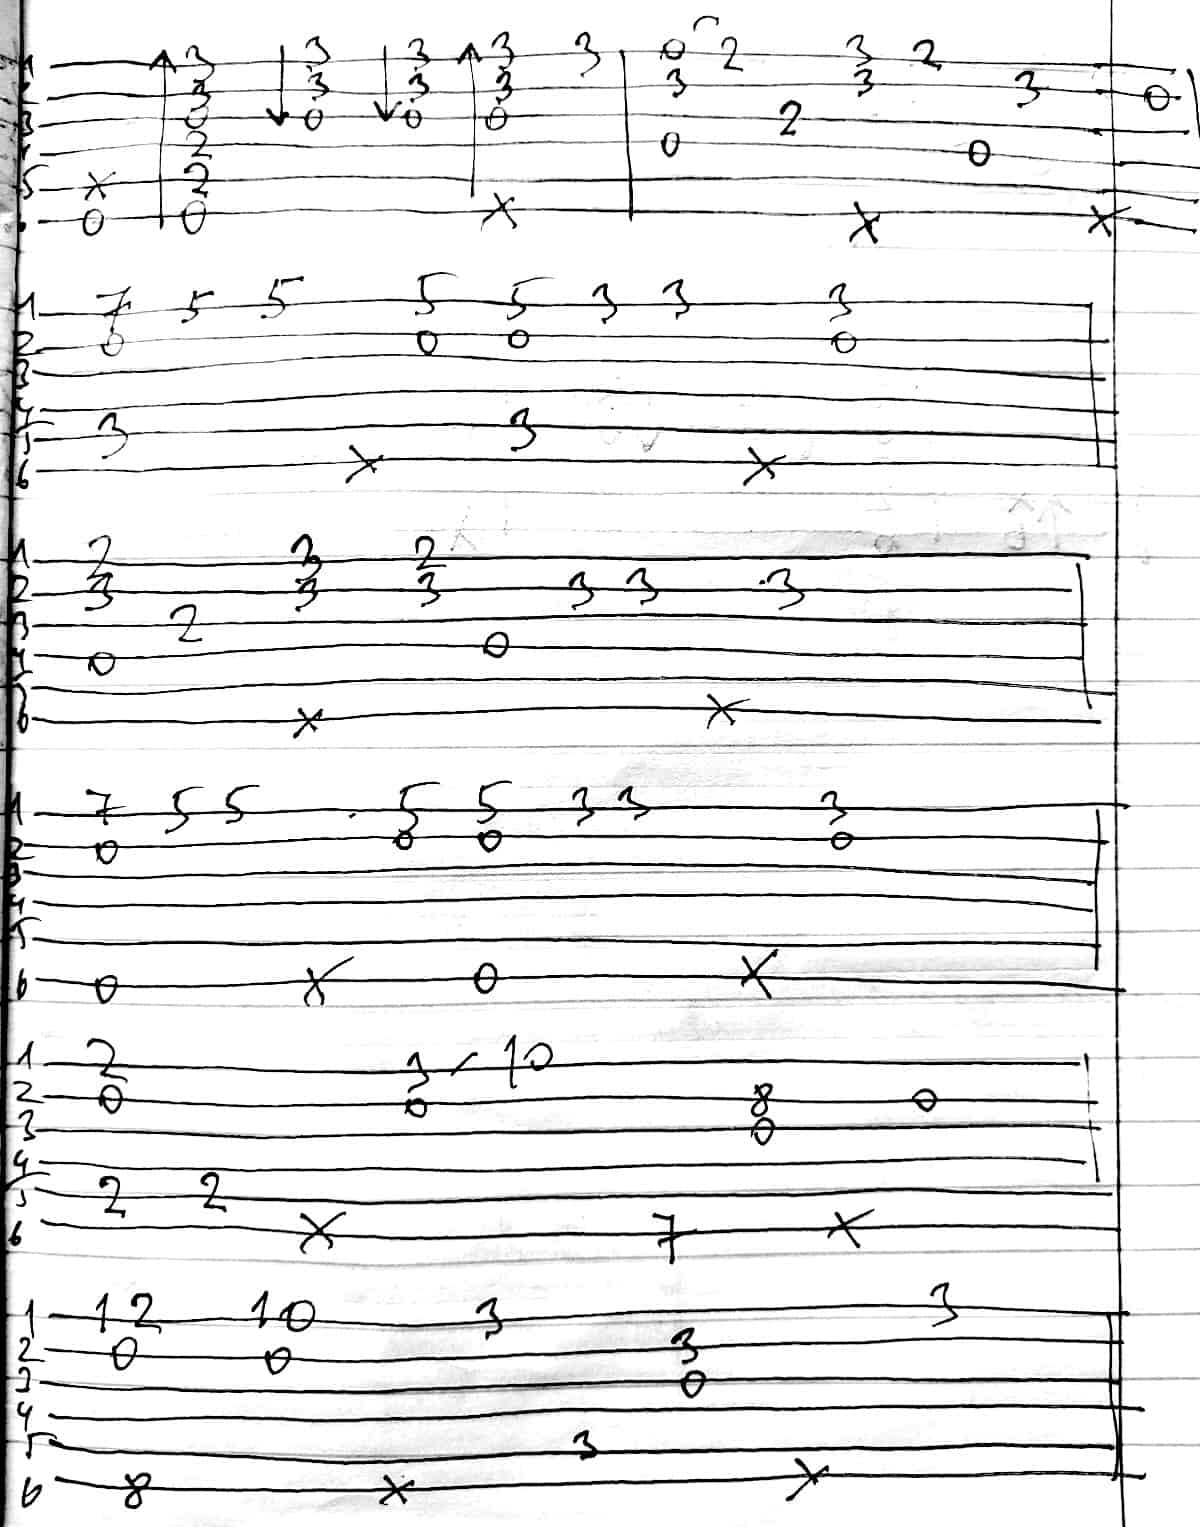 1 ↑ 3 ↓ 3 ↓ 3 ↑ 3 3 | 0 ⌒ 2 3 2
2 3 3 3 3 3 3 3 0 |
3 0 0 0 0 2
4 2 0 0
5 X 2
0 0 X X X
1 7 5 5 5 5 3 3 3
2 0 0 0 0
3
4
5 3 3
6 X X
1 2 3 2
2 3 3 3 3 3 3
3 2
4 0 0
5
6 X X
1 7 5 5 5 5 3 3 3
2 0 0 0 0
3
4
5
6 0 X 0 X
1 2 3 / 10
2 0 0 8 0
3 0
4
5 2 2
6 X 7 X
1 12 10 3 3
2 0 0 3
3 0
4
5 3
6 8 X X